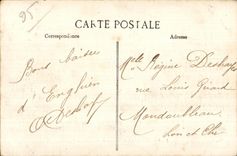 95
CARTE POSTALE
Correspondance
Adresse
Bons baisers
d'Enghien
Mlle Régine Deshayes
rue Louis Girard
Mondoubleau
Loir et Cher